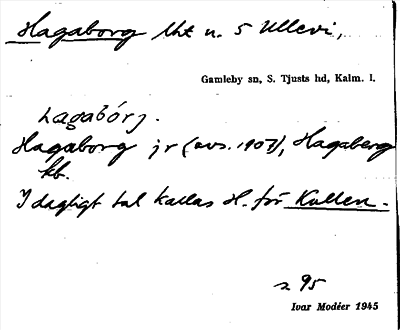 Hagaborg lht u. 5 Ullevi,
Gamleby sn, S. Tjusts hd, Kalm. l.
hagabórj.
Hagaborg jr (avs. 1907), Hagaberg
kb.
I dagligt tal kallas H. för Kullen.
s 95
Ivar Modéer 1945